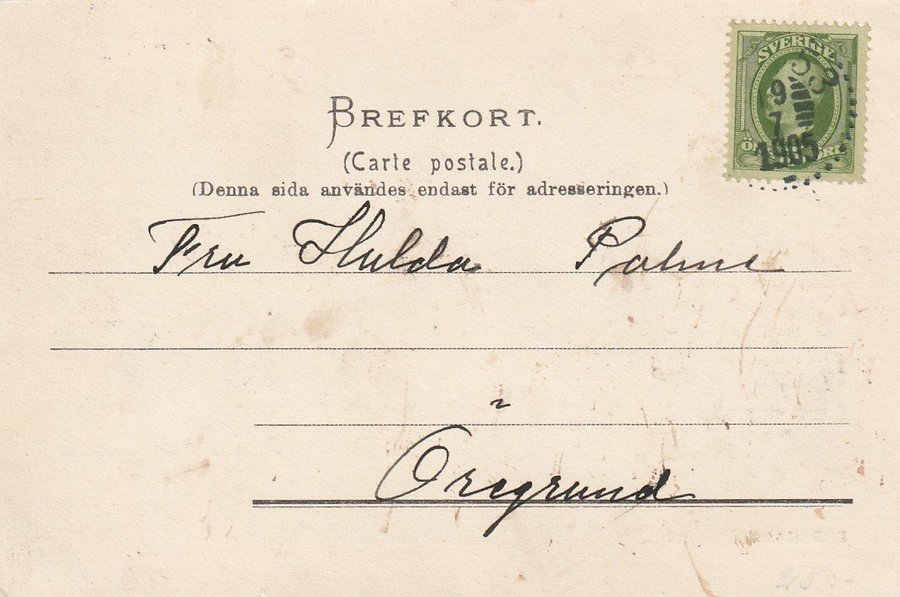 SVERIGE
BREFKORT.
(Carte postale.)
(Denna sida användes endast för adresseringen.)
9
7
1905
Fru Hulda Palme
Öregrund